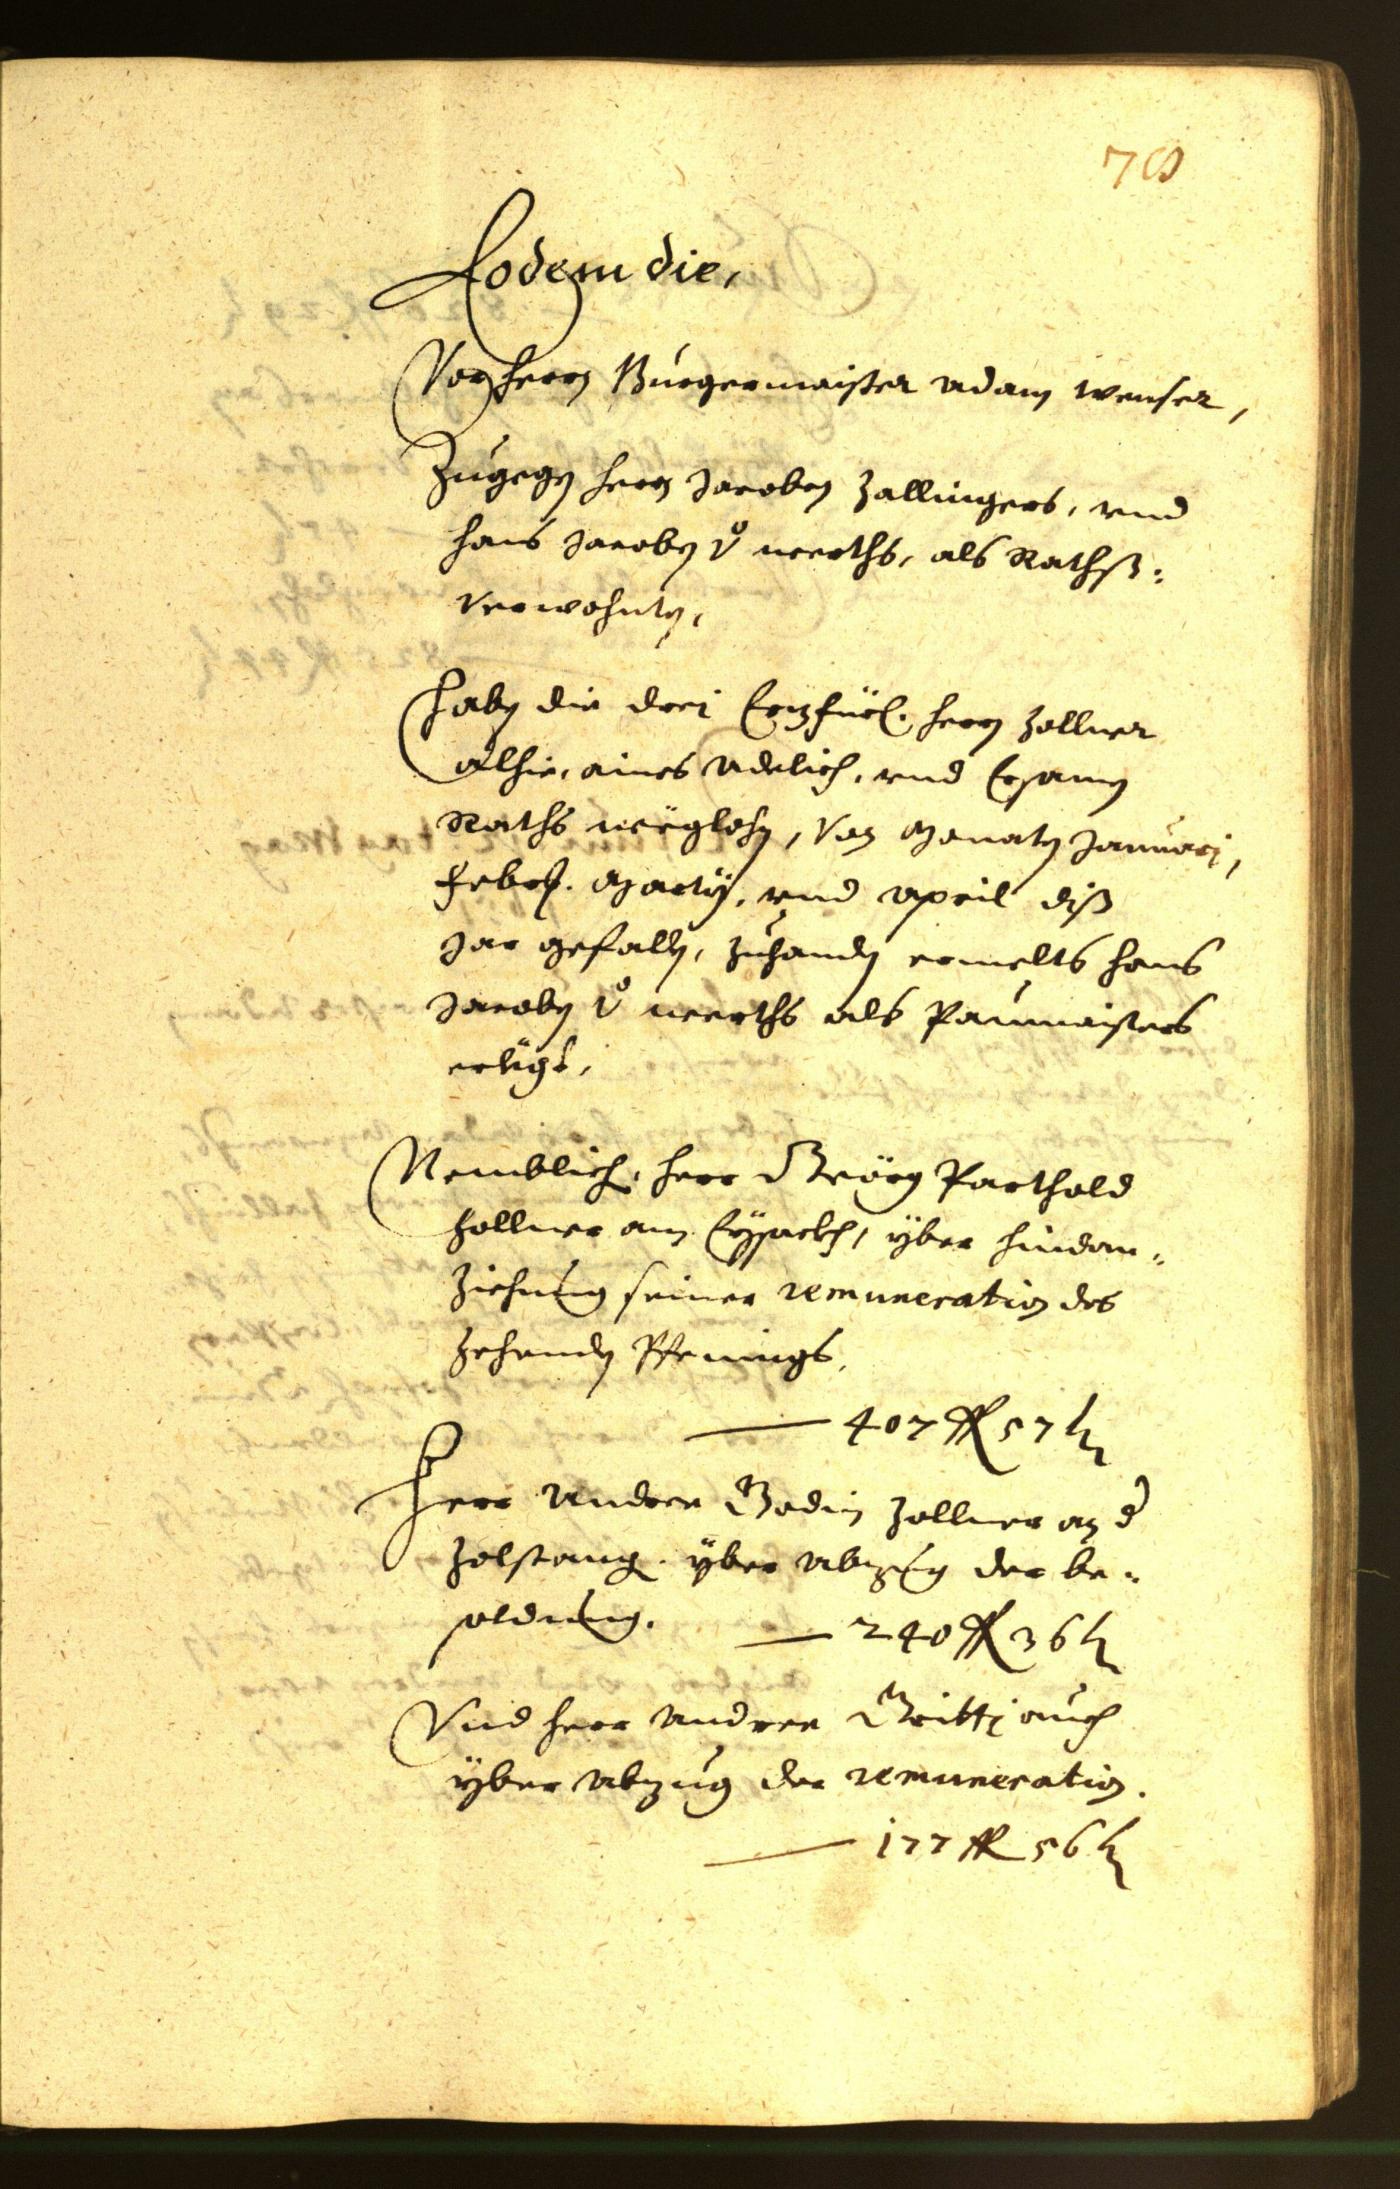 78
Eodem die,
Von herrn Burgermaister Adam Wenser,
Zugegen herrn Jacoben Zallingers, vnd
Hans Jacoben V̊ als Rathß:
verwohnten,
Haben die drei Erzfürl. herrn Zollner
alhie, aines Adelich, vnd Ersamen
Raths, Von Monaten Januarj,
Febr. Martÿ, vnd April diß
Jar gefallen, zuhanden ermelts Hans
Jacoben V̊ als Paumaisters
erlegt,
Nemblich, herr Geörg Parthold
Zollner am Eysackh, yber hindan„
ziehung seiner remuneration des
zehenden Pfenings,
— 407 fl 57 kr
Herr Andree Godin Zollner an d
Zolstang. yber abzug der be„
soldung. — 240 fl 36 kr
Vnd herr Andree auch
yber abzug der remuneration.
— 177 fl 56 kr